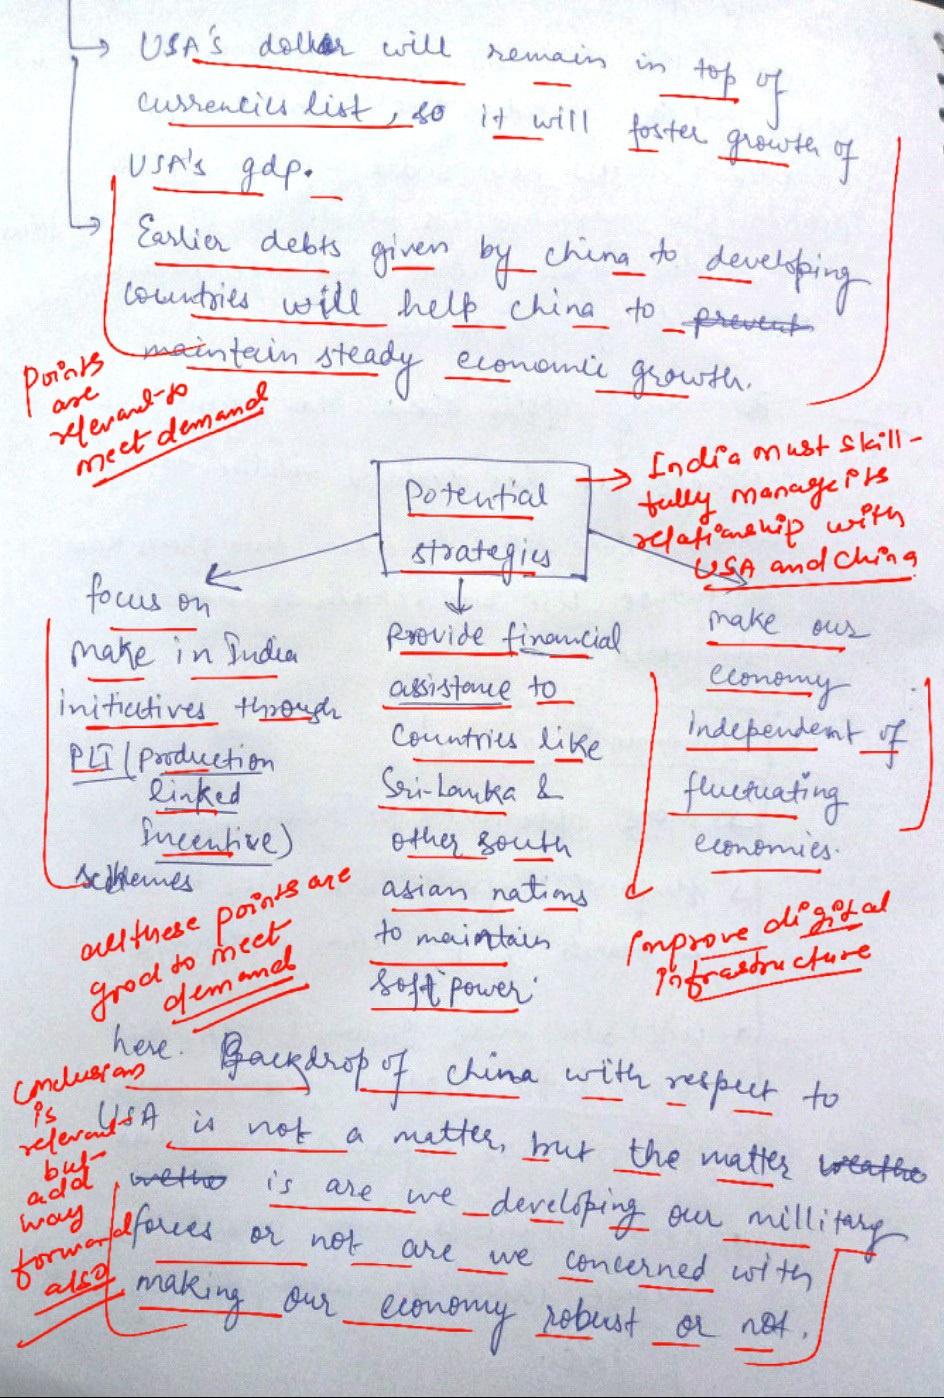 USA's dollar will remain in top of
currencies list, so it will foster growth of
USA's gdp.
Earlier debts given by china to developing
countries will help china to prevent
maintain steady economic growth.
Points
are
relevant to
meet demand
Potential
strategies
India must skill-
fully manage its
relationship with
USA and China
focus on
make in India
initiatives through
PLI (production
linked
Incentive)
schemes
provide financial
assistance to
countries like
Sri-Lanka &
other south
asian nations
to maintain
soft power.
make our
economy
independent of
fluctuating
economies.
all these points are
good to meet
demand
Improve digital
infrastructure
here. Backdrop of china with respect to
USA is not a matter, but the matter
is are we developing our millitary
forces or not are we concerned with
making our economy robust or not.
Conclusion
is
relevant
but
add
way
forward
also